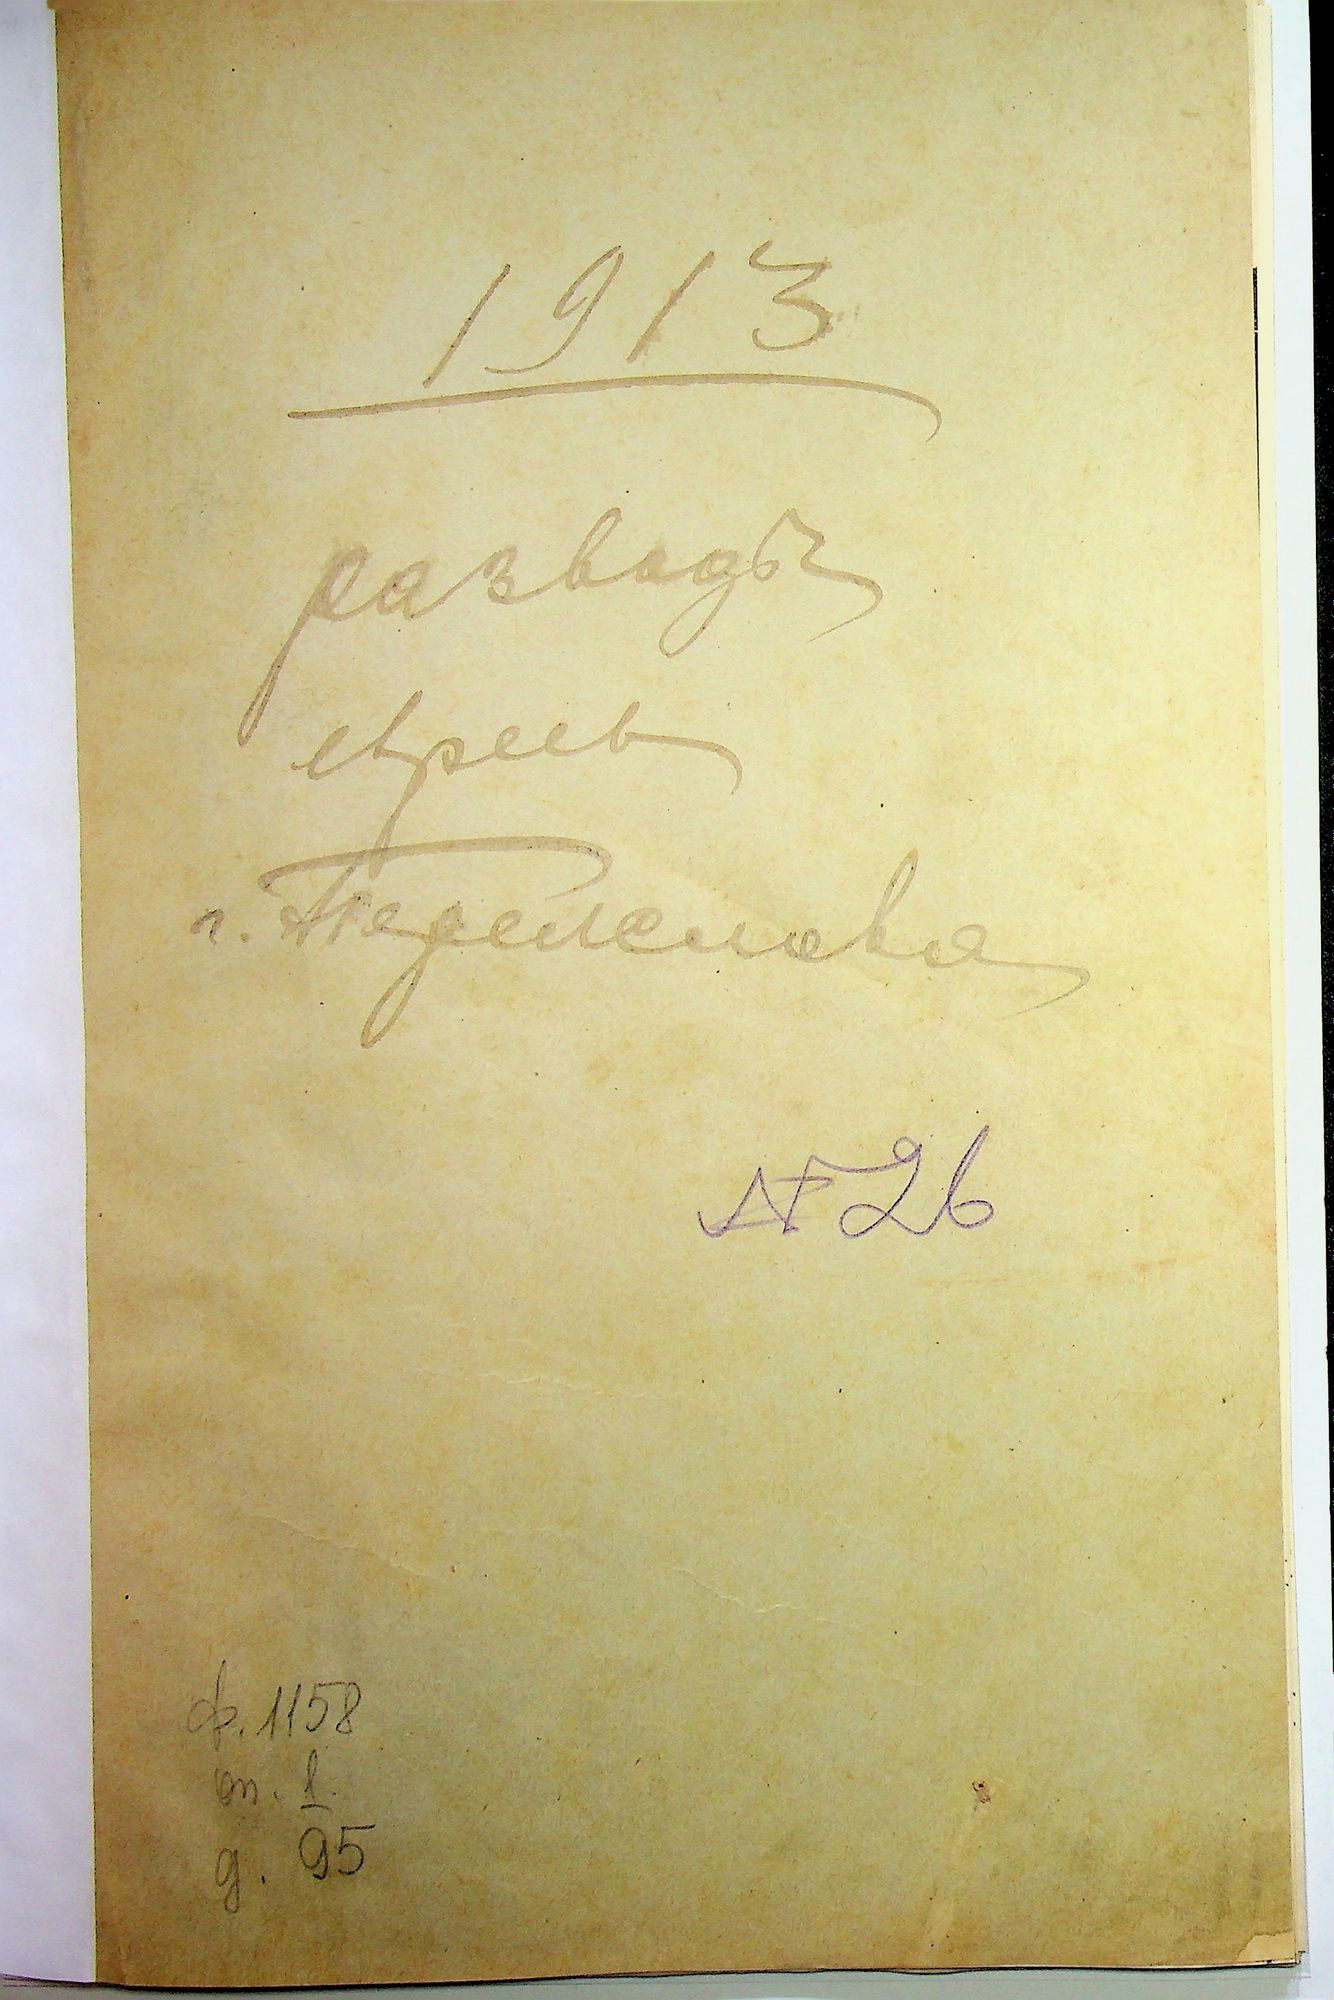 1913
разводъ
евреев
г. Переяслава
№ 26
ф. 1158
оп. 1
д. 95